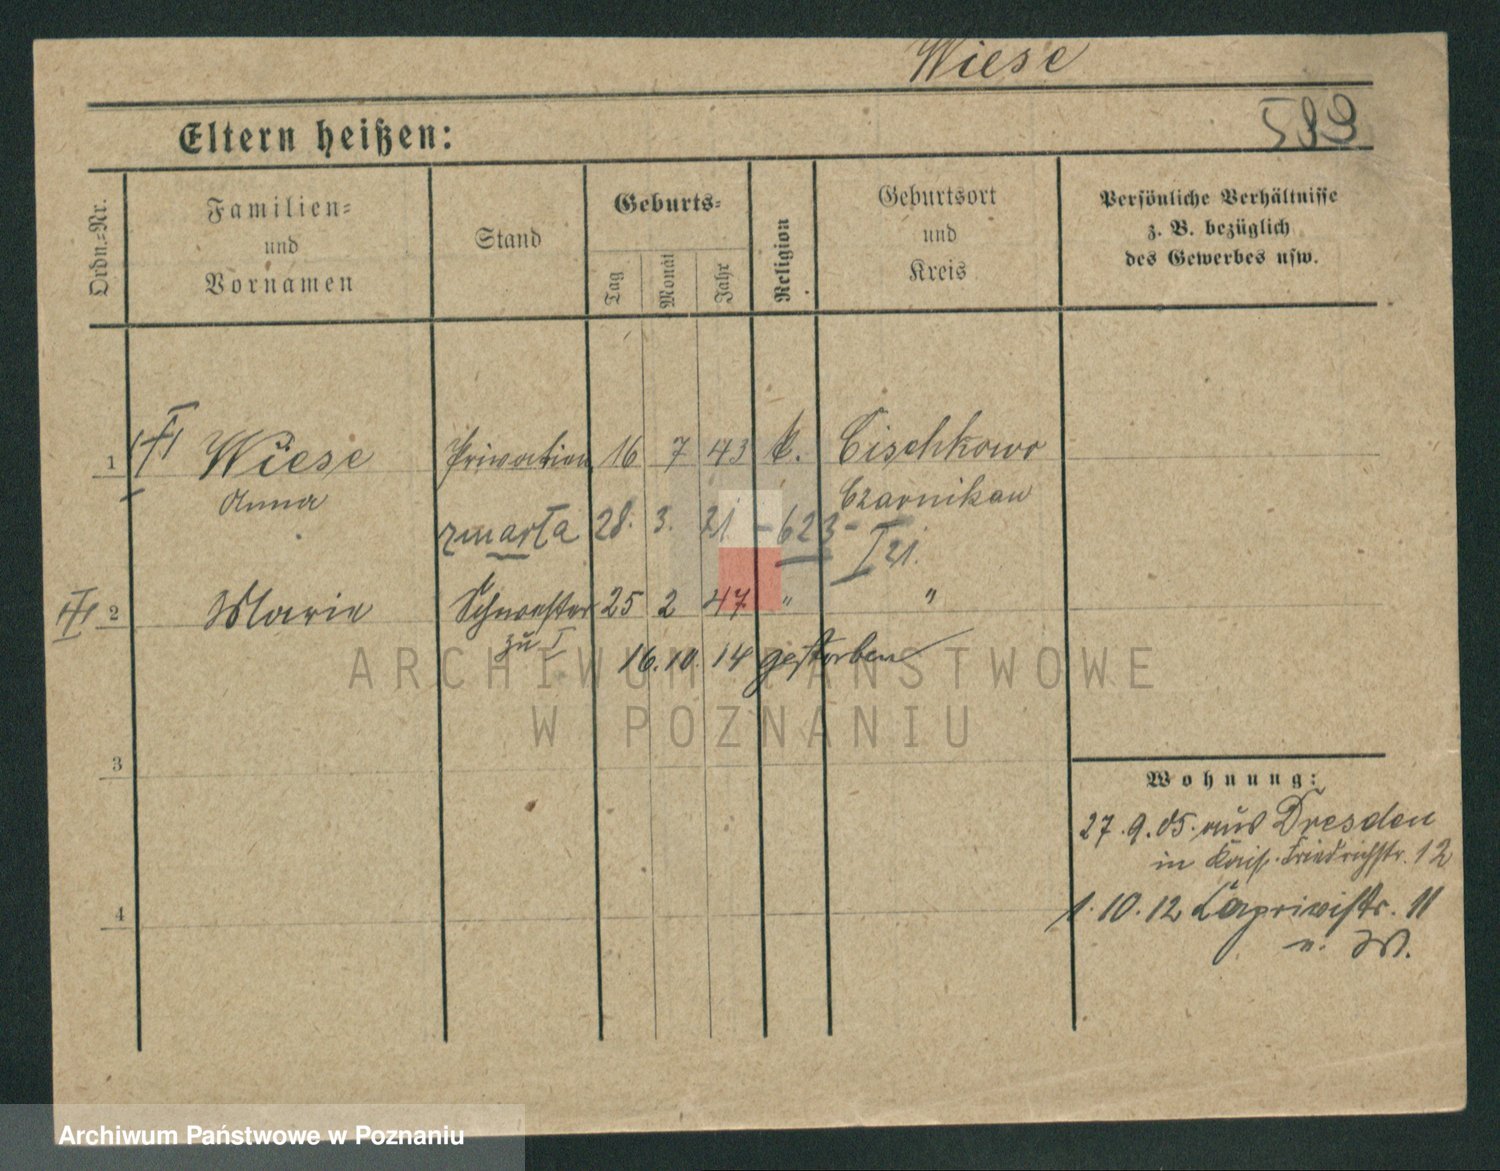 Wiese
Eltern heißen:
Ordn.-Nr.
Familien-
und
Vornamen
Stand
Geburts-
Tag
Monat
Jahr
Religion
Geburtsort
und
Kreis
Persönliche Verhältnisse
z. B. bezüglich
des Gewerbes usw.
1 Wiese 16 7 43 k. Cischkowo
Anna Czarnikau
zmarła 28. 3. 21 -623- I 21.
2 Marie Schwester 25 2 47 " "
zu I
16. 10. 14 gestorben
3
4
Wohnung:
27. 9. 05. aus Dresden
in Kais. Friedrichstr. 12
1. 10. 12 Caprivistr. 11
n. W.
ARCHIWUM PAŃSTWOWE
W POZNANIU
Archiwum Państwowe w Poznaniu